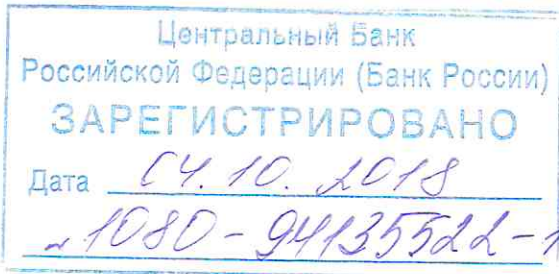 Центральный Банк
Российской Федерации (Банк России)
ЗАРЕГИСТРИРОВАНО
Дата 04.10.2018
1080-94135522-1